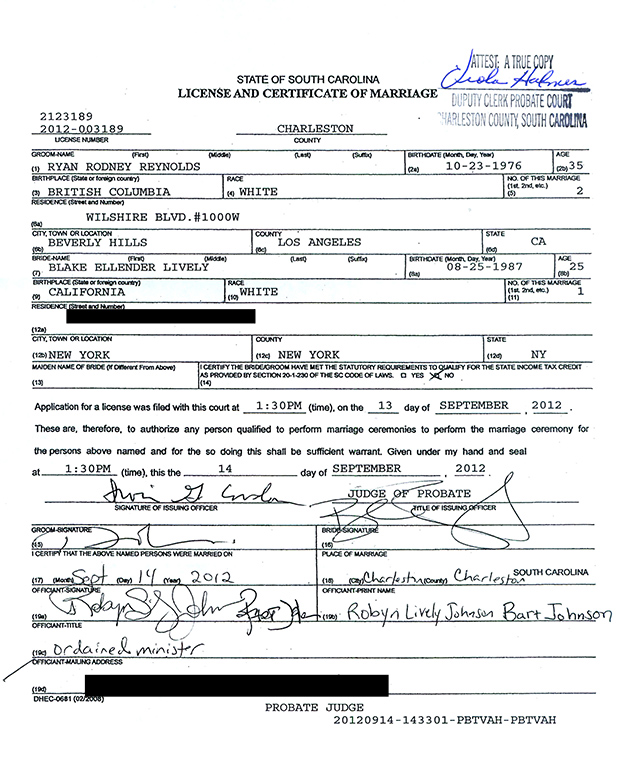 ATTEST: A TRUE COPY
DEPUTY CLERK PROBATE COURT
CHARLESTON COUNTY, SOUTH CAROLINA
STATE OF SOUTH CAROLINA
LICENSE AND CERTIFICATE OF MARRIAGE
2123189
2012-003189 CHARLESTON
LICENSE NUMBER COUNTY
GROOM-NAME (First) (Middle) (Last) (Suffix) BIRTHDATE (Month, Day, Year) AGE
(1) RYAN RODNEY REYNOLDS (2a) 10-23-1976 (2b) 35
BIRTHPLACE (State or foreign country) RACE NO. OF THIS MARRIAGE
(1st, 2nd, etc.)
(3) BRITISH COLUMBIA (4) WHITE (5) 2
RESIDENCE (Street and Number)
WILSHIRE BLVD.#1000W
(6a)
CITY, TOWN OR LOCATION COUNTY STATE
(6b) BEVERLY HILLS (6c) LOS ANGELES (6d) CA
BRIDE-NAME (First) (Middle) (Last) (Suffix) BIRTHDATE (Month, Day, Year) AGE
(7) BLAKE ELLENDER LIVELY (8a) 08-25-1987 (8b) 25
BIRTHPLACE (State or foreign country) RACE NO. OF THIS MARRIAGE
(1st, 2nd, etc.)
(9) CALIFORNIA (10) WHITE (11) 1
RESIDENCE (Street and Number)
(12a)
CITY, TOWN OR LOCATION COUNTY STATE
(12b) NEW YORK (12c) NEW YORK (12d) NY
MAIDEN NAME OF BRIDE (If Different From Above) I CERTIFY THE BRIDE/GROOM HAVE MET THE STATUTORY REQUIREMENTS TO QUALIFY FOR THE STATE INCOME TAX CREDIT
AS PROVIDED BY SECTION 20-1-230 OF THE SC CODE OF LAWS. YES NO
(13) (14)
Application for a license was filed with this court at 1:30PM (time), on the 13 day of SEPTEMBER , 2012 .
These are, therefore, to authorize any person qualified to perform marriage ceremonies to perform the marriage ceremony for
the persons above named and for the so doing this shall be sufficient warrant. Given under my hand and seal
at 1:30PM (time), this the 14 day of SEPTEMBER , 2012.
JUDGE OF PROBATE
SIGNATURE OF ISSUING OFFICER TITLE OF ISSUING OFFICER
GROOM-SIGNATURE BRIDE-SIGNATURE
(15) (16)
I CERTIFY THAT THE ABOVE NAMED PERSONS WERE MARRIED ON PLACE OF MARRIAGE
(17) (Month) Sept (Day) 14 (Year) 2012 (18) (City) Charleston (County) Charleston SOUTH CAROLINA
OFFICIANT-SIGNATURE OFFICIANT-PRINT NAME
(19a) (19b) Robyn Lively Johnson Bart Johnson
OFFICIANT-TITLE
(19c) ordained minister
OFFICIANT-MAILING ADDRESS
(19d)
DHEC-0681 (02/2008)
PROBATE JUDGE
20120914-143301-PBTVAH-PBTVAH